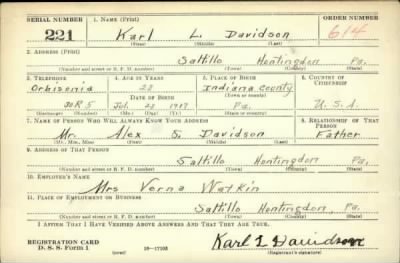 SERIAL NUMBER 1. NAME (Print) ORDER NUMBER
221 Karl L. Davidson 614
(First) (Middle) (Last)
2. ADDRESS (Print)
Saltillo Huntingdon Pa.
(Number and street or R. F. D. number) (Town) (County) (State)
3. TELEPHONE 4. AGE IN YEARS 5. PLACE OF BIRTH 6. COUNTRY OF CITIZENSHIP
Orbisonia 23 Indiana County
DATE OF BIRTH (Town or county)
30R5 Jul. 1917 Pa. U.S.A.
(Exchange) (Number) (Mo.) (Day) (Yr.) (State or country)
7. NAME OF PERSON WHO WILL ALWAYS KNOW YOUR ADDRESS 8. RELATIONSHIP OF THAT PERSON
Mr. Alex S. Davidson Father
(Mr., Mrs., Miss) (First) (Middle) (Last)
9. ADDRESS OF THAT PERSON
Saltillo Huntingdon Pa.
(Number and street or R. F. D. number) (Town) (County) (State)
10. EMPLOYER'S NAME
Mrs Verna Watkin
11. PLACE OF EMPLOYMENT OR BUSINESS
Saltillo Huntingdon, Pa.
(Number and street or R. F. D. number) (Town) (County) (State)
I AFFIRM THAT I HAVE VERIFIED ABOVE ANSWERS AND THAT THEY ARE TRUE.
REGISTRATION CARD
D. S. S. Form 1 (over) 16—17105 Karl L Davidson
(Registrant's signature)